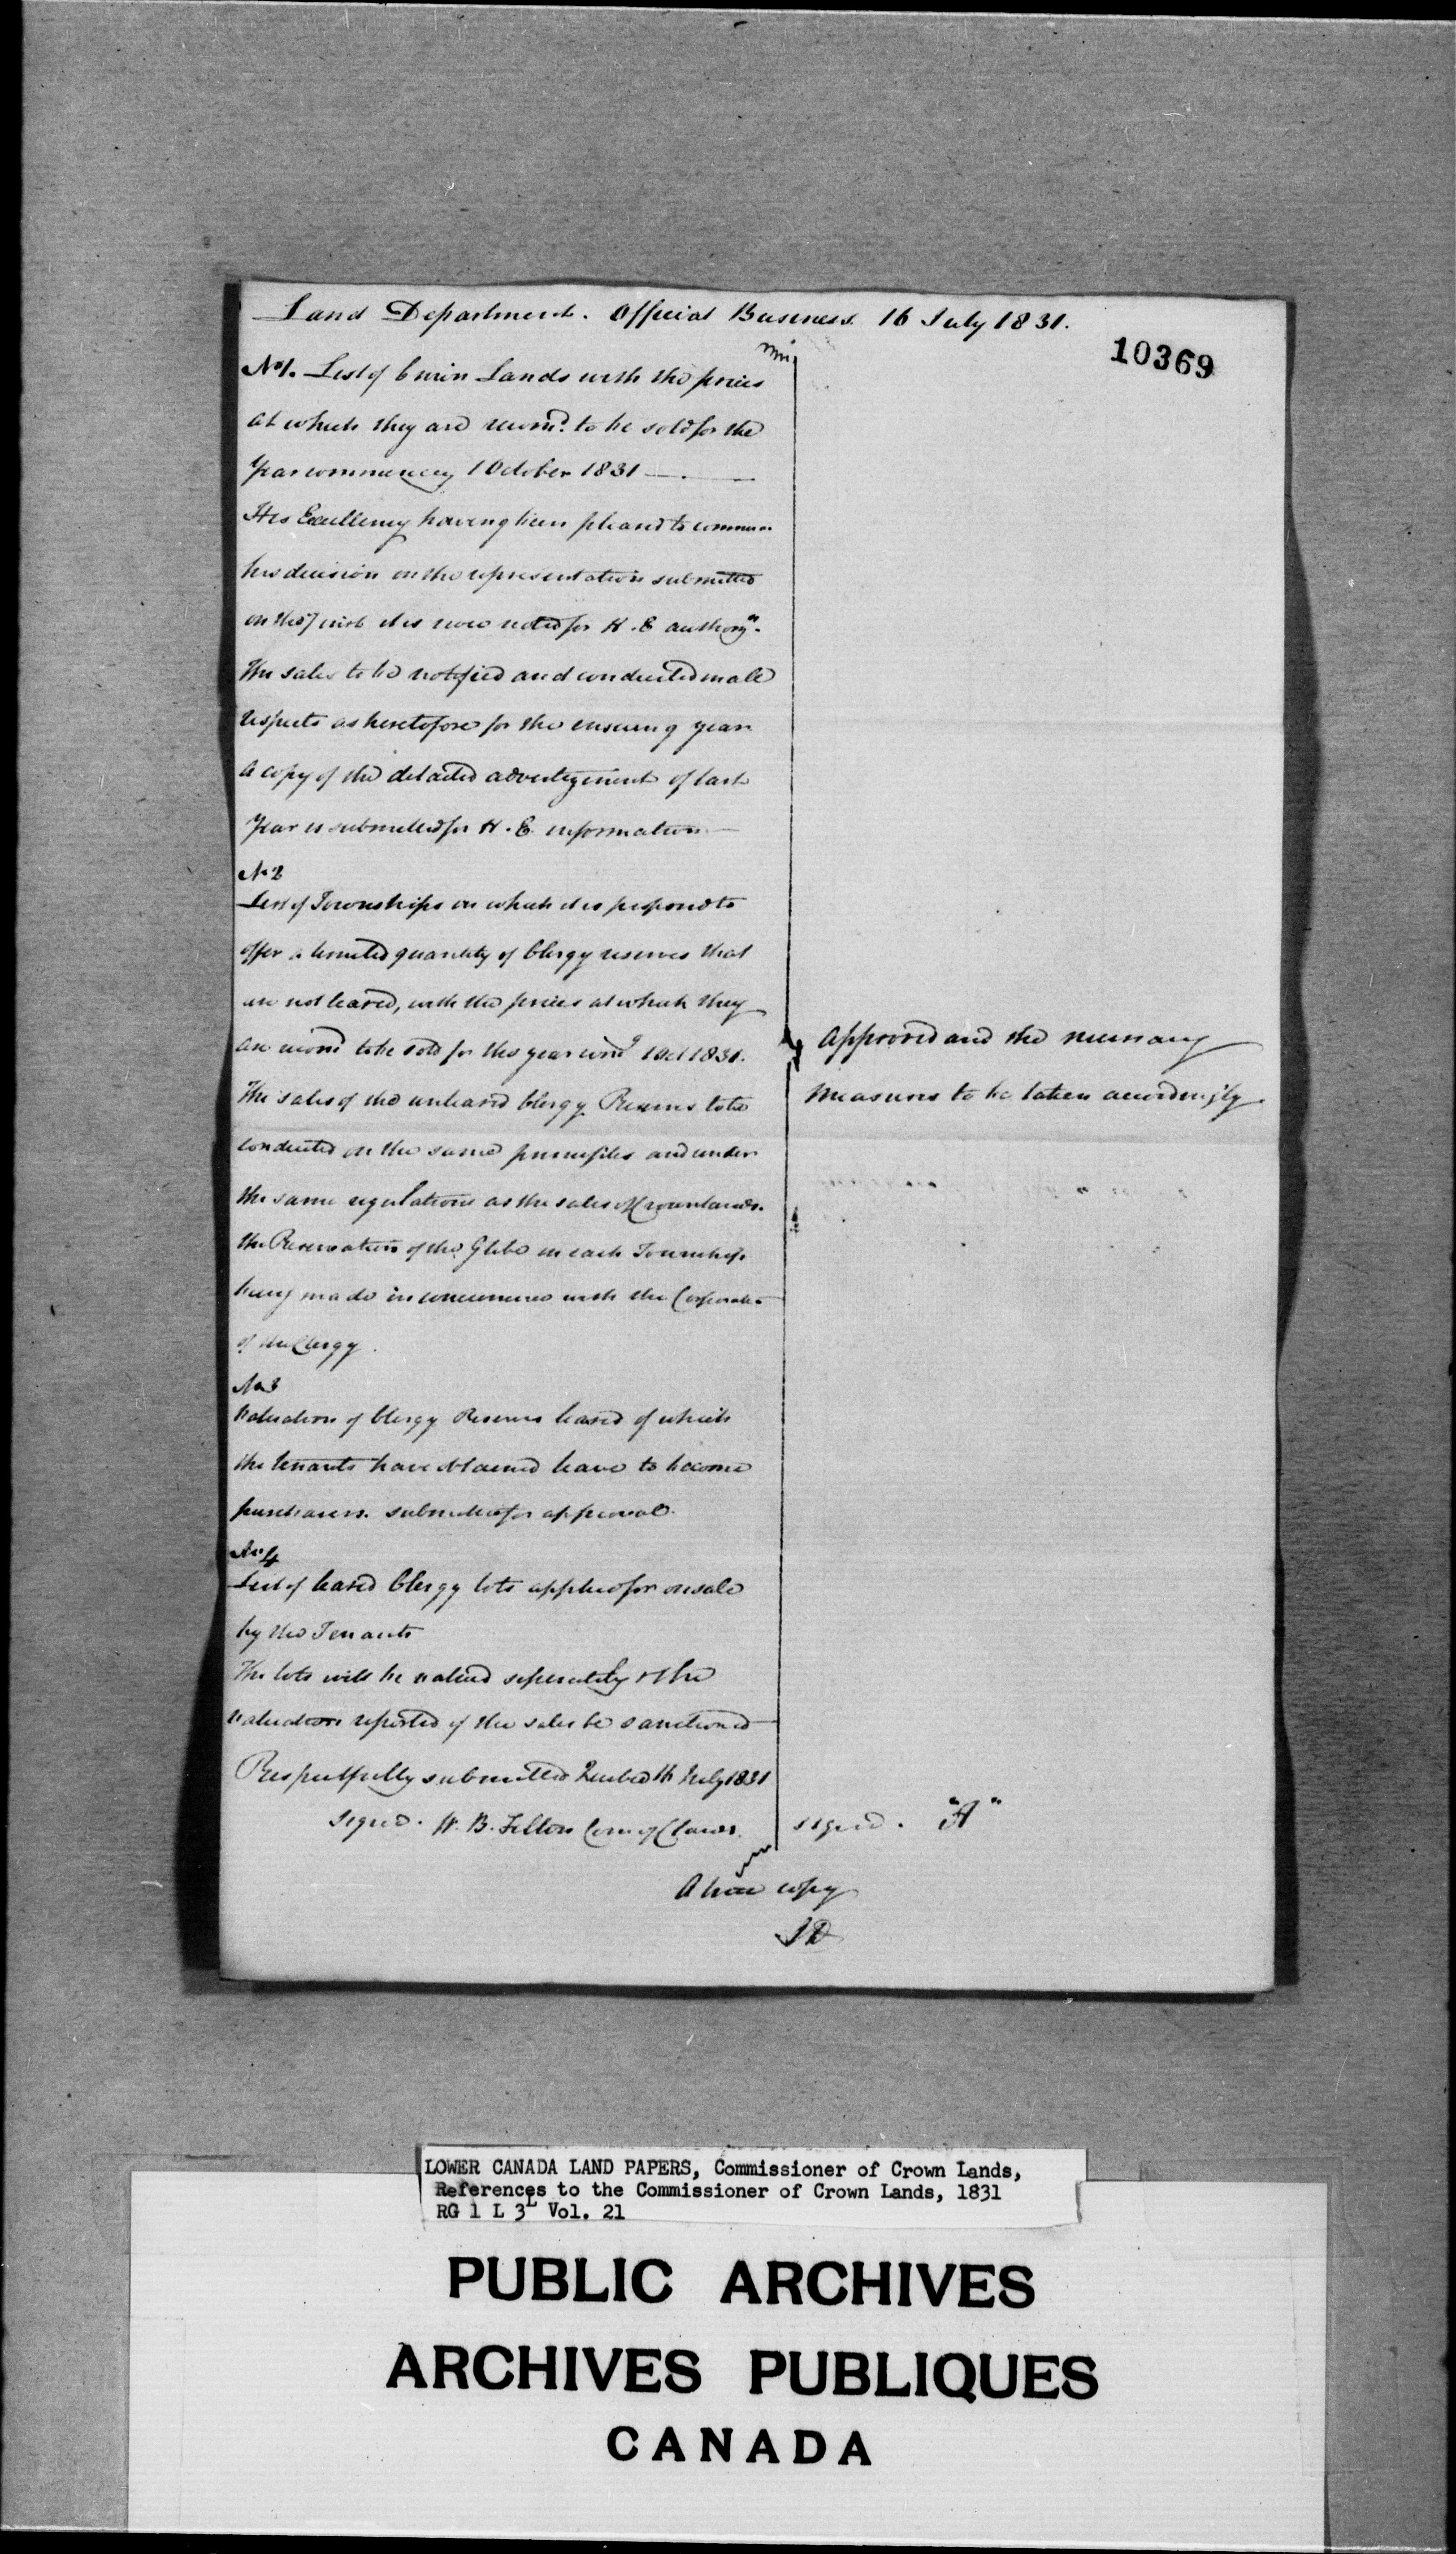 Land Department. Official Business. 16 July 1831.
10369
No 1. List of Crown Lands with the prices
at which they are recomd. to be sold for the
Year commencing 1 October 1831 —
His Excellency having been pleased to commun
his decision on the representation submitted
on the 7 inst it is now noted for H. E
The sales to be notified and conducted in all
respects as heretofore for the ensuing year
a copy of the detailed advertizement of last
Year is submitted for H. E. information —
No 2
List of Townships in which it is proposed to
offer a limited quantity of Clergy reserves that
are not leased, with the prices at which they
are recomd to be sold for the year comg 1 Oct 1831.
The sales of the unleased Clergy Reserves to be
conducted on the same principles and under
the same regulations as the sales of Crown lands.
the Reservation of the Glebe in each Township
being made in concurrence with the Corporation
of the Clergy.
No 3
Valuation of Clergy Reserves leased of which
the tenants have obtained leave to become
purchasers. submitted for approval.
No 4
List of leased Clergy lots applied for on sale
by the Tenants
The lots will be valued seperately & the
valuation reported if the sales be sanctioned
Respectfully submitted Quebec 16 July 1831
signed. W. B. Felton Com of C Lands.
Approved and the necessary
measures to be taken accordingly.
signed. "A"
A true copy
LOWER CANADA LAND PAPERS, Commissioner of Crown Lands,
References to the Commissioner of Crown Lands, 1831
RG 1 L 3L Vol. 21
PUBLIC ARCHIVES
ARCHIVES PUBLIQUES
CANADA